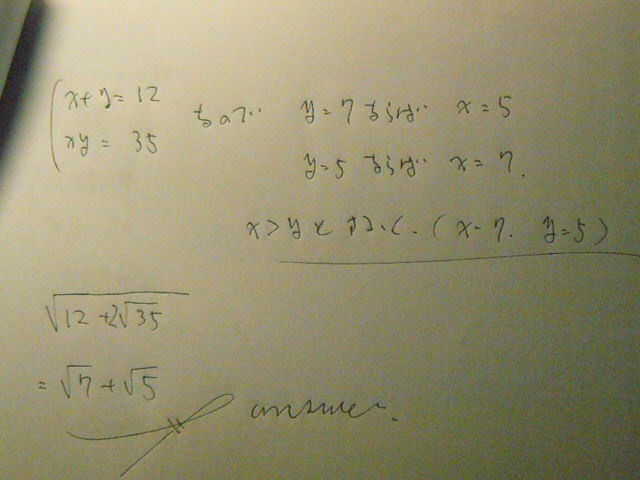 x+y=12
xy=35
なので y=7ならば x=5
y=5ならば x=7.
x>yとおいて. (x=7. y=5)
√(12+2√35)
=√7+√5
answer.